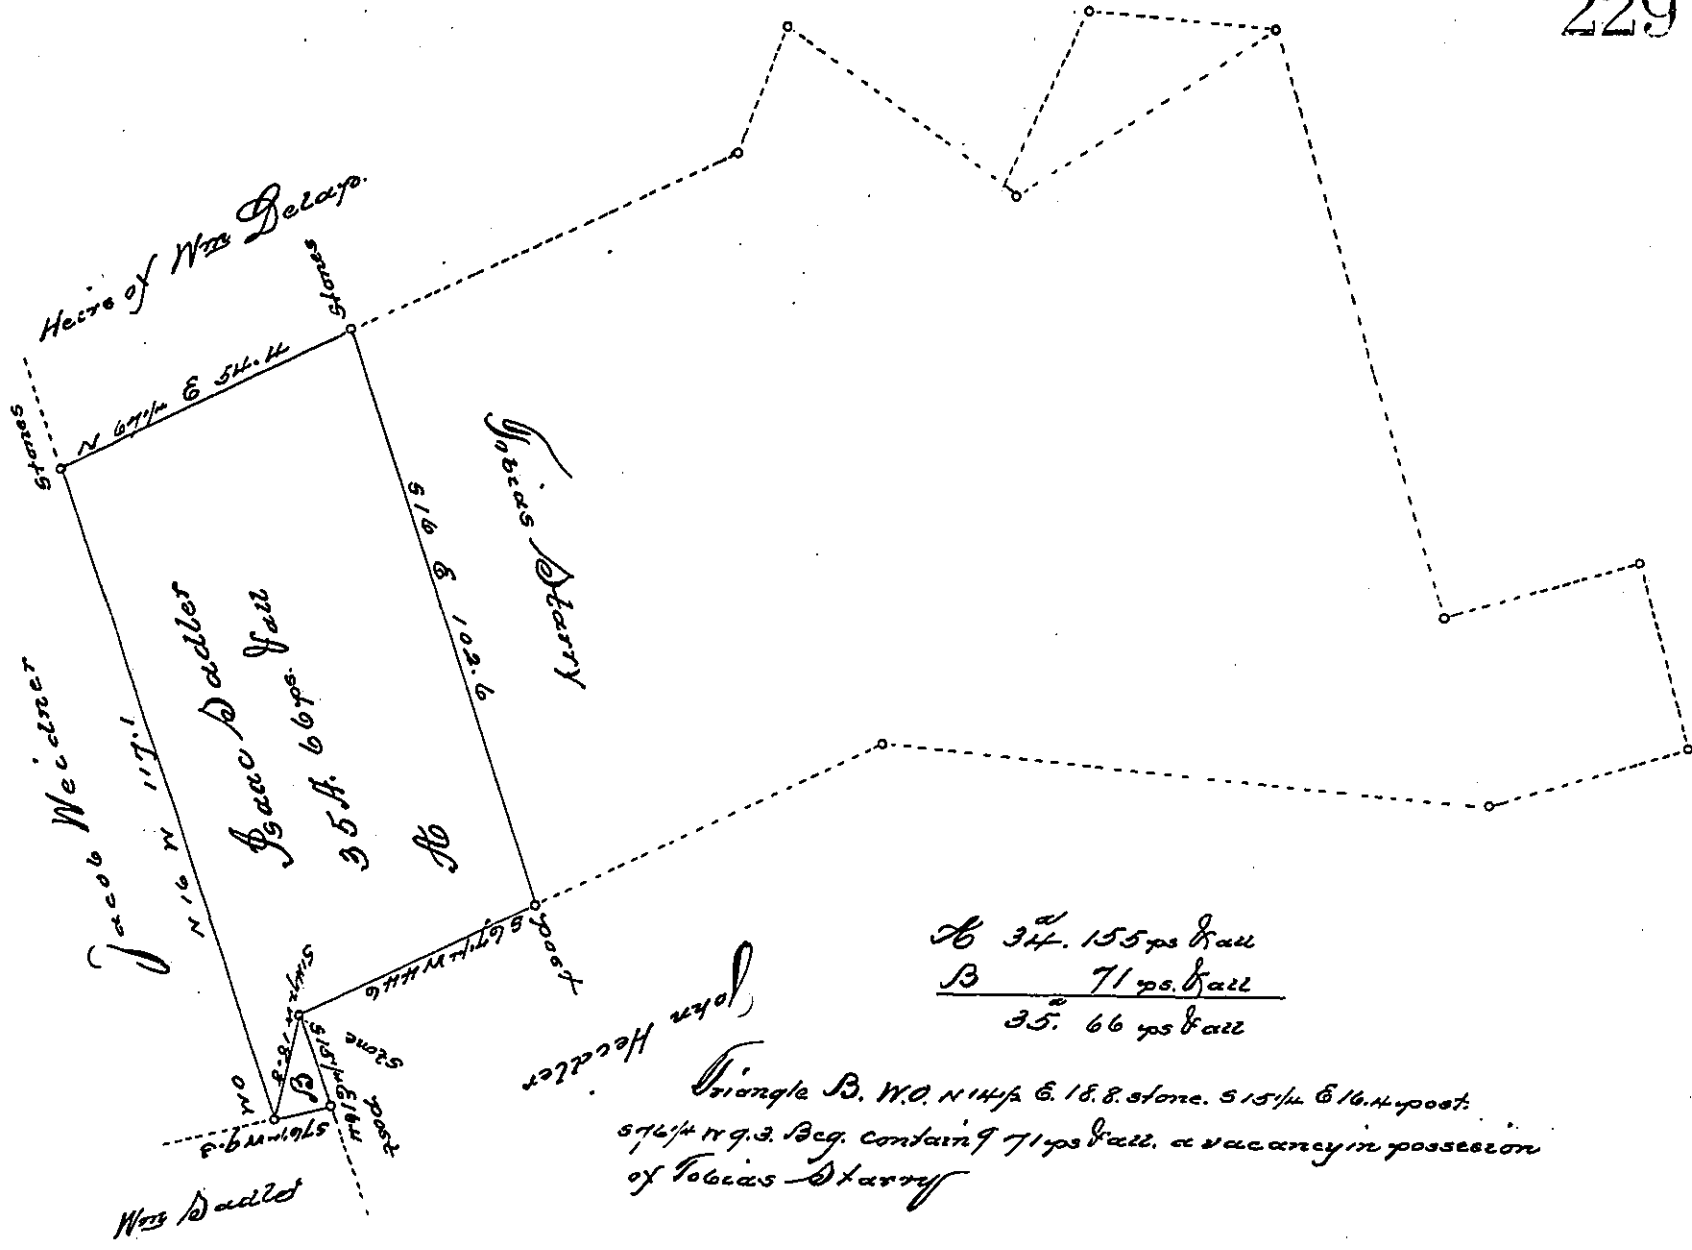 229
Heirs of Wm Delap.
Stones
Stones
N 67 1/4 E 54.4
S 16 E 102.6
Tobias Starry
Jacob Weidner
N 16 W 117.1
Isaac Sadler
35 A. 66 ps. & all
A
S 67 1/4 W 44.6
post
John Heidler
Stone
18.8
B
S 15 1/4 E 16.4
post
WO
S 76 1/4 W 9.3
Wm Sadler
A 34.a 155 ps & all
B 71 ps. & all
35.a 66 ps & all
Triangle B. W.O. N 14 1/2 E. 18.8. stone. S 15 1/4 E 16.4. post.
S 76 1/4 W 9.3. Beg. containg 71 ps & all. a vacancy in possesion
of Tobias Starry